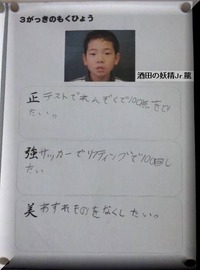 3がっきのもくひょう
酒田の妖精Jr.龍
正 テストでれんぞくで100点をと
りたい。
強 サッカーでリフティングで100回し
たい
美 わすれものをなくしたい。